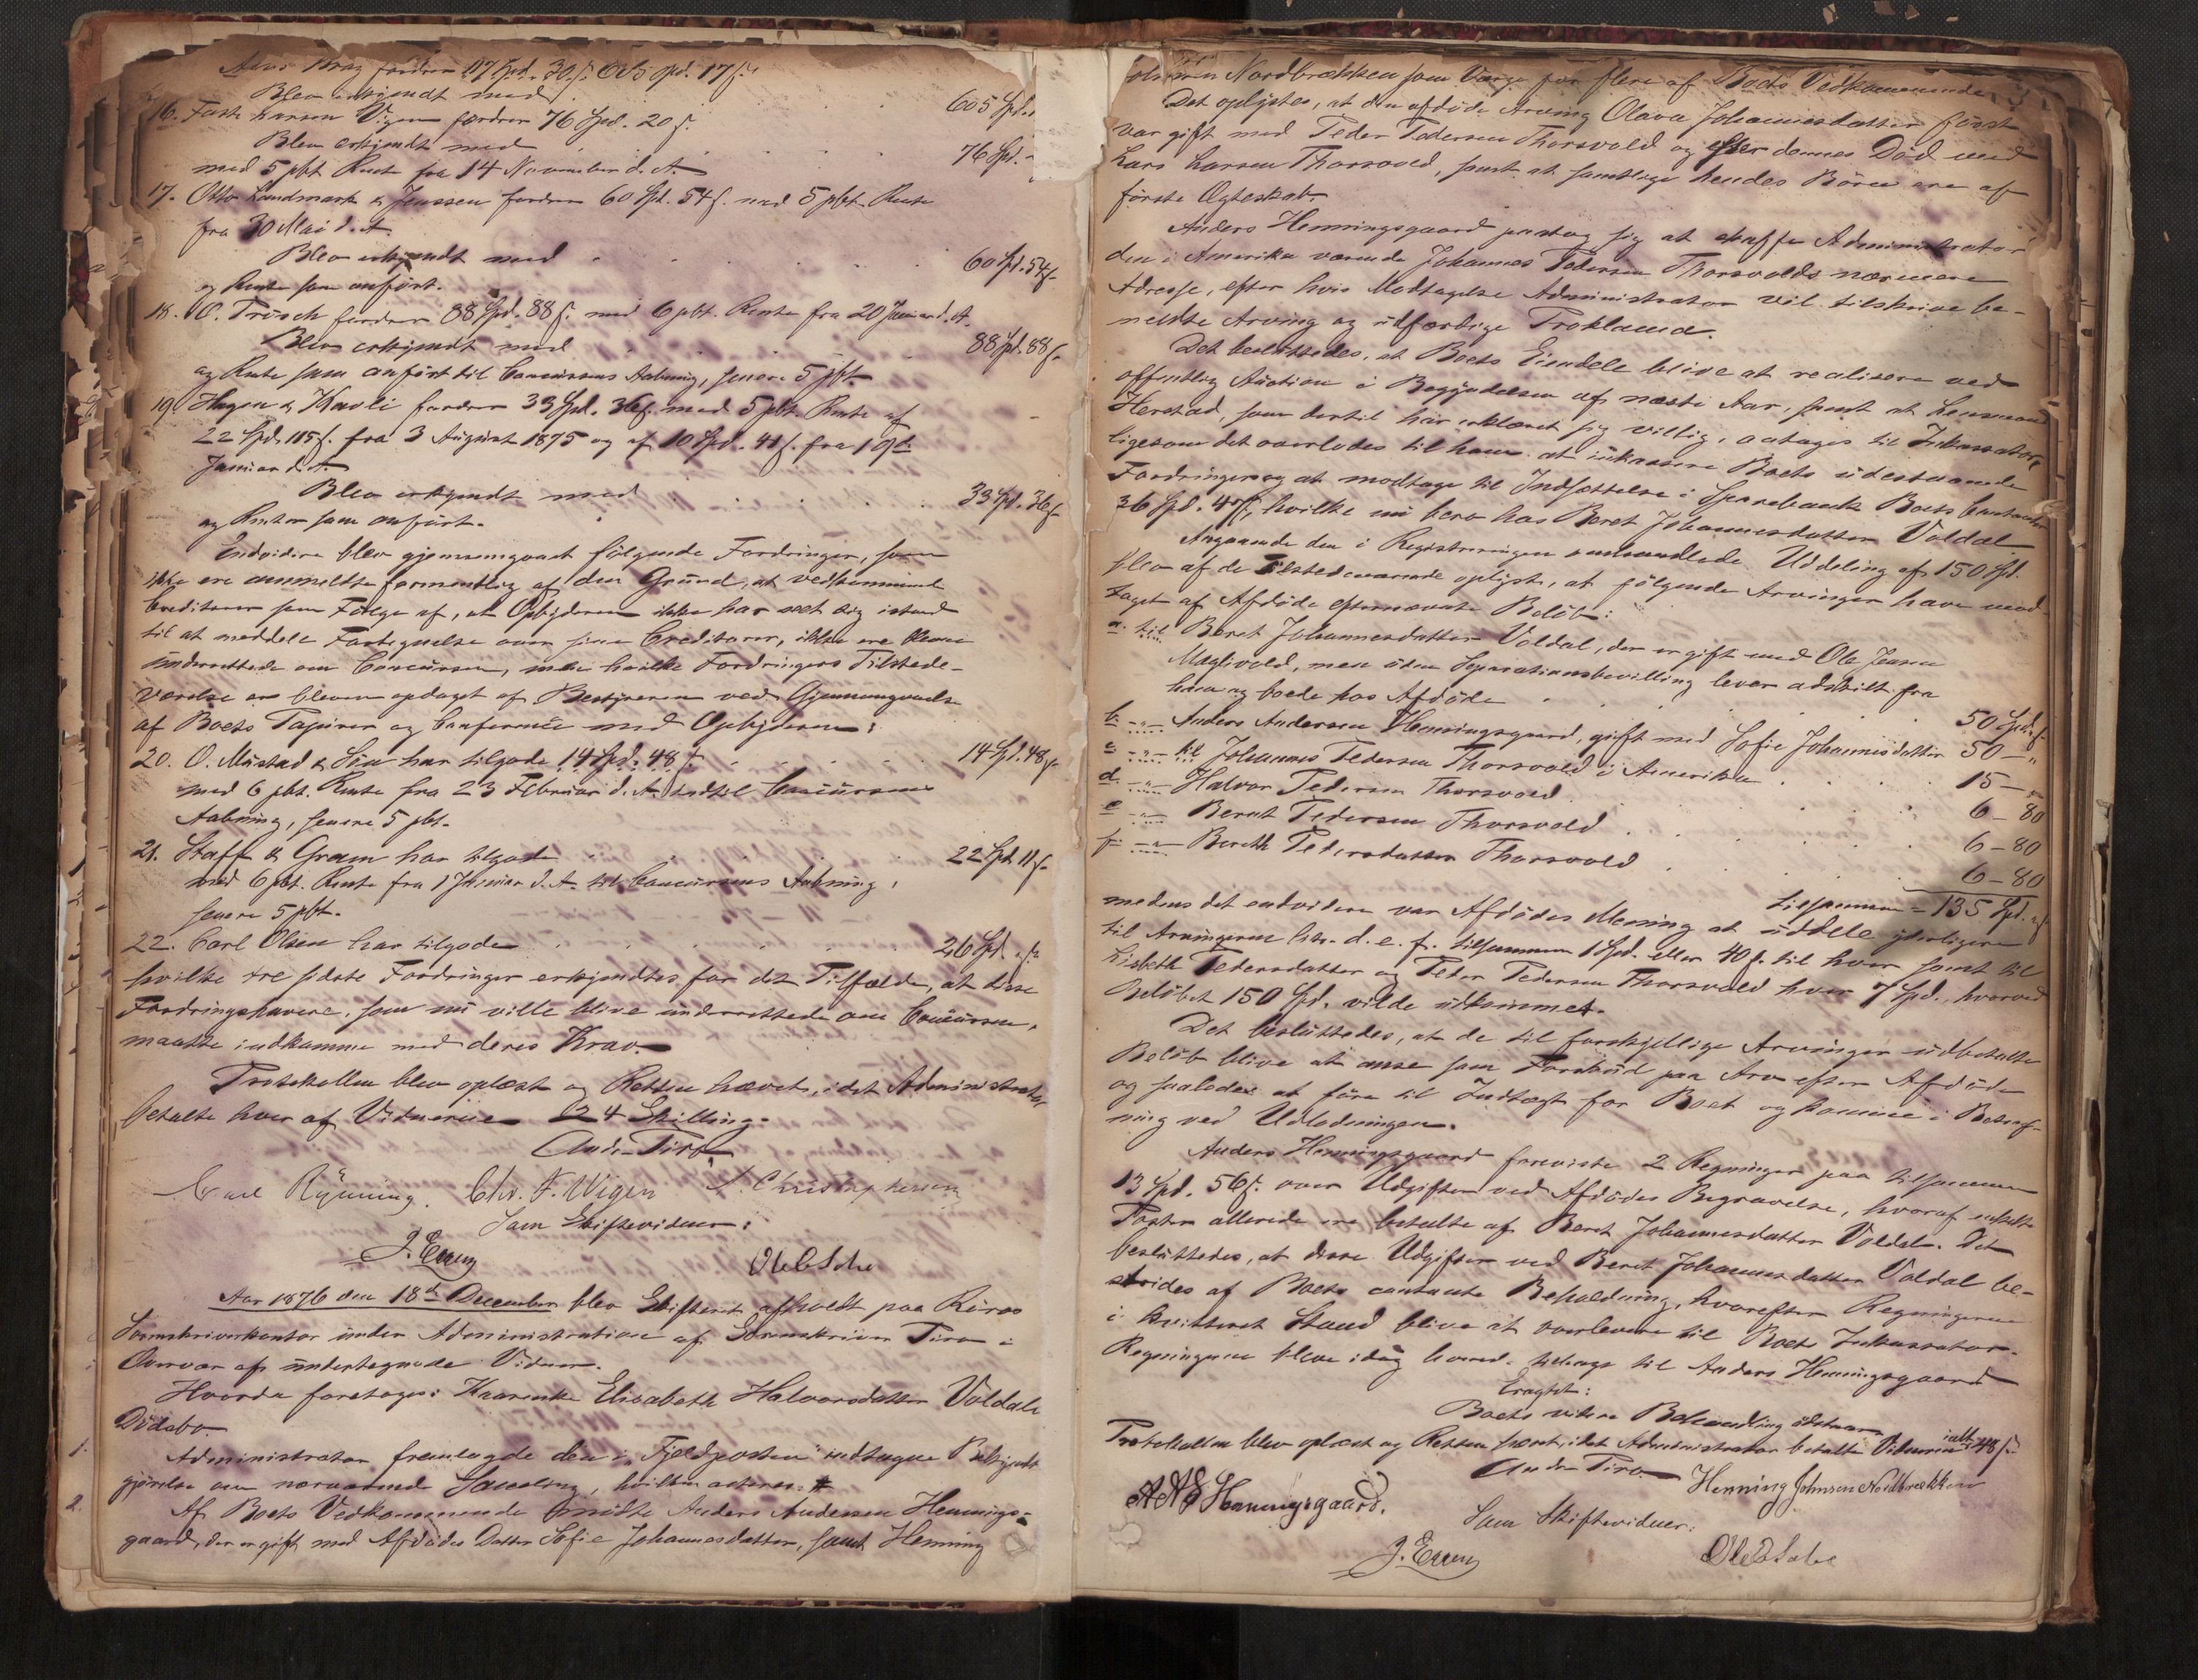 fordrer 117 Spd. 30 s. 605 Spd. 17 s.
Blev erkjendt med 605 Spd.
16. Larsen Vigen fordrer 76 Spd. 20 s.
Blev erkjendt med 76 Spd.
med 5 pCt. Rente fra 14 November d. A.
17. Otto Landmark & Jenssen fordrer 60 Spd. 54 s. med 5 pCt. Rente
fra 30 Mai d. A.
Blev erkjendt med 60 Spd. 54 s.
og Rente som anført.
18. O. Trøsch fordrer 88 Spd. 88 s. med 6 pCt. Rente fra 20 Januar d. A.
Blev erkjendt med 88 Spd. 88 s.
og Rente som anført til Concursens Aabning, senere 5 pCt.
19. Hagen & Kavli fordrer 33 Spd. 36 s. med 5 pCt. Rente af
22 Spd. 115 s. fra 3 August 1875 og af 10 Spd. 41 s. fra
Januar d. A.
Blev erkjendt med 33 Spd. 36 s.
og Renter som anført.
Endvidere blev gjennemgaaet følgende Fordringer, som
ikke ere anmeldte formentlig af den Grund, at vedkommende
Creditorer som Følge af, at Opbyderen ikke har seet sig istand
til at meddele Fortegnelse over sine Creditorer, ikke ere blevne
underrettede om Concursen, men hvilke Fordringers Tilstede-
værelse er bleven opdaget af Bestyreren ved Gjennemgaaelse
af Boets Papirer og Conference med Opbyderen:
20. O. Mustad & Søn har tilgode 14 Spd. 48 s. 14 Spd. 48 s.
med 6 pCt. Rente fra 23 Februar d. A. indtil Concursens
Aabning, senere 5 pCt.
21. Staff & Gram har tilgode 22 Spd. 11 s.
med 6 pCt. Rente fra 1 Januar d. A. til Concursens Aabning,
senere 5 pCt.
22. Carl Olsen har tilgode 26 Spd. " s.
hvilke tre sidste Fordringer erkjendtes for det Tilfælde, at disse
Fordringshavere, som nu ville blive underrettede om Concursen,
maatte indkomme med deres Krav.
Protokollen blev oplæst og Retten hævet, idet Administrator
betalte hver af Vidnerne 24 Skilling.
Andr. Piro
Carl Rynning. Chr. F. Wigen Christophersen
Som Skiftevidner:
J. Engen Ole
Aar 1876 den 18de December blev Skifteret afholdt paa Røros
Sorenskriverkontor under Administration af Sorenskriver Piro i
Overvær af undertegnede Vidner.
Hvorda foretoges: Karenke Elisabeth Halvorsdatter Voldals
Dødsbo.
1. Administrator fremlagde den i "Fjeldposten" indtagne Bekjendt-
gjørelse om nærværende Samling, hvilken acteres #
2. Af Boets Vedkommende mødte Anders Andersen Hennings-
gaard, der er gift med Afdødes Datter Sofie Johannesdatter, samt Henning
Johnsen Nordbrækken som Værge for flere af Boets Vedkommende.
Det oplystes, at den afdøde Arving Olava Johannesdatter først
var gift med Peder Pedersen Thorsvold og efter dennes Død med
Lars Larsen Thorsvold, samt at samtlige hendes Børn ere af
første Ægteskab.
Anders Henningsgaard paatog sig at skaffe Administrator
den i Amerika værende Johannes Pedersen Thorsvolds nærmere
Adresse, efter hvis Modtagelse Administrator vil tilskrive be-
meldte Arving og udfærdige Proklama.
Det besluttedes, at Boets Eiendele blive at realisere ved
offentlig Auction i Begyndelsen af næste Aar, samt at Lensmand
Herstad, som dertil har erklæret sig villig, antages til Inkassator,
ligesom det overlodes til ham at inkassere Boets udestaaende
Fordringer og at modtage til Indsættelse i Sparebank Boets Contanter
36 Spd. 4 s., hvilke nu bero hos Beret Johannesdatter Voldal.
Angaaende den i Registreringen omhandlede Uddeling af 150 Spd.
blev af de Tilstedeværende oplyst, at følgende Arvinger have mod-
taget af Afdøde efternævnte Beløb:
a. til Beret Johannesdatter Voldal, der er gift med Ole Jensen
Møglivold, men uden Separationsbevilling lever adskilt fra
ham og boede hos Afdøde 50 Spd. " s.
b. " Anders Andersen Henningsgaard, gift med Sofie Johannesdatter 50 – "
c. " til Johannes Pedersen Thorsvold i Amerika 15 – "
d. " Halvor Pedersen Thorsvold 6 – 80
e. " Bernt Pedersen Thorsvold 6 – 80
f. " Bereth Pedersdatter Thorsvold 6 – 80
tilsammen = 135 Spd. " s.
medens det endvidere var Afdødes Mening at uddele yderligere
til Arvingerne litr. d. e. f. tilsammen 1 Spd. eller 40 s. til hver samt til
Lisbeth Pedersdatter og Peder Pedersen Thorsvold hver 7 Spd., hvorved
Beløbet 150 Spd. vilde udkomme.
Det besluttedes, at de til forskjellige Arvinger udbetalte
Beløb blive at anse som Forskud paa Arv efter Afdøde
og saaledes at føre til Indtægt for Boet og komme i Betragt-
ning ved Udlodningen.
Anders Henningsgaard foreviste 2 Regninger paa tilsammen
13 Spd. 56 s. over Udgifter ved Afdødes Begravelse, hvoraf enkelte
Poster allerede ere betalte af Beret Johannesdatter Voldal. Det
besluttedes, at disse Udgifter ved Beret Johannesdatter Voldal be-
strides af Boets contante Beholdning, hvorefter Regningerne
i kvitteret Stand blive at overlevere til Boets Inkassator.
Regningerne bleve idag lev. tilbage til Anders Henningsgaard
Eragtet:
Boets videre Behandling udstaar.
Protokollen blev oplæst og Retten hævet, idet Administrator betalte Vidnerne ialt 48 s.
Andr. Piro. Henning Johnsen Nordbrækken
A A S Henningsgaard.
Som Skiftevidner:
J. Engen Ole